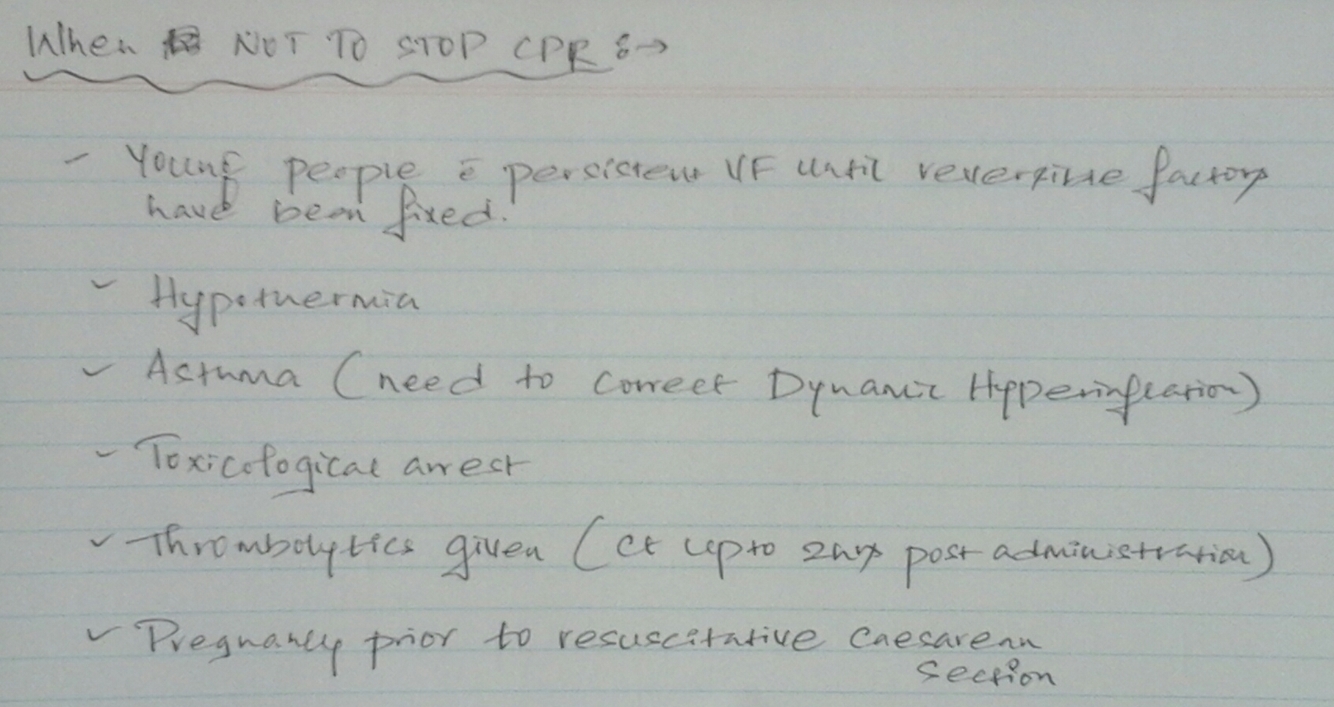 When NOT TO STOP CPR :→
- Young people c̄ persistent VF until reversible factors
have been fixed.
- Hypothermia
- Asthma (need to correct Dynamic Hyperinflation)
- Toxicological arrest
- Thrombolytics given (ct upto 2hrs post administration)
- Pregnancy prior to resuscitative Caesarean
Section